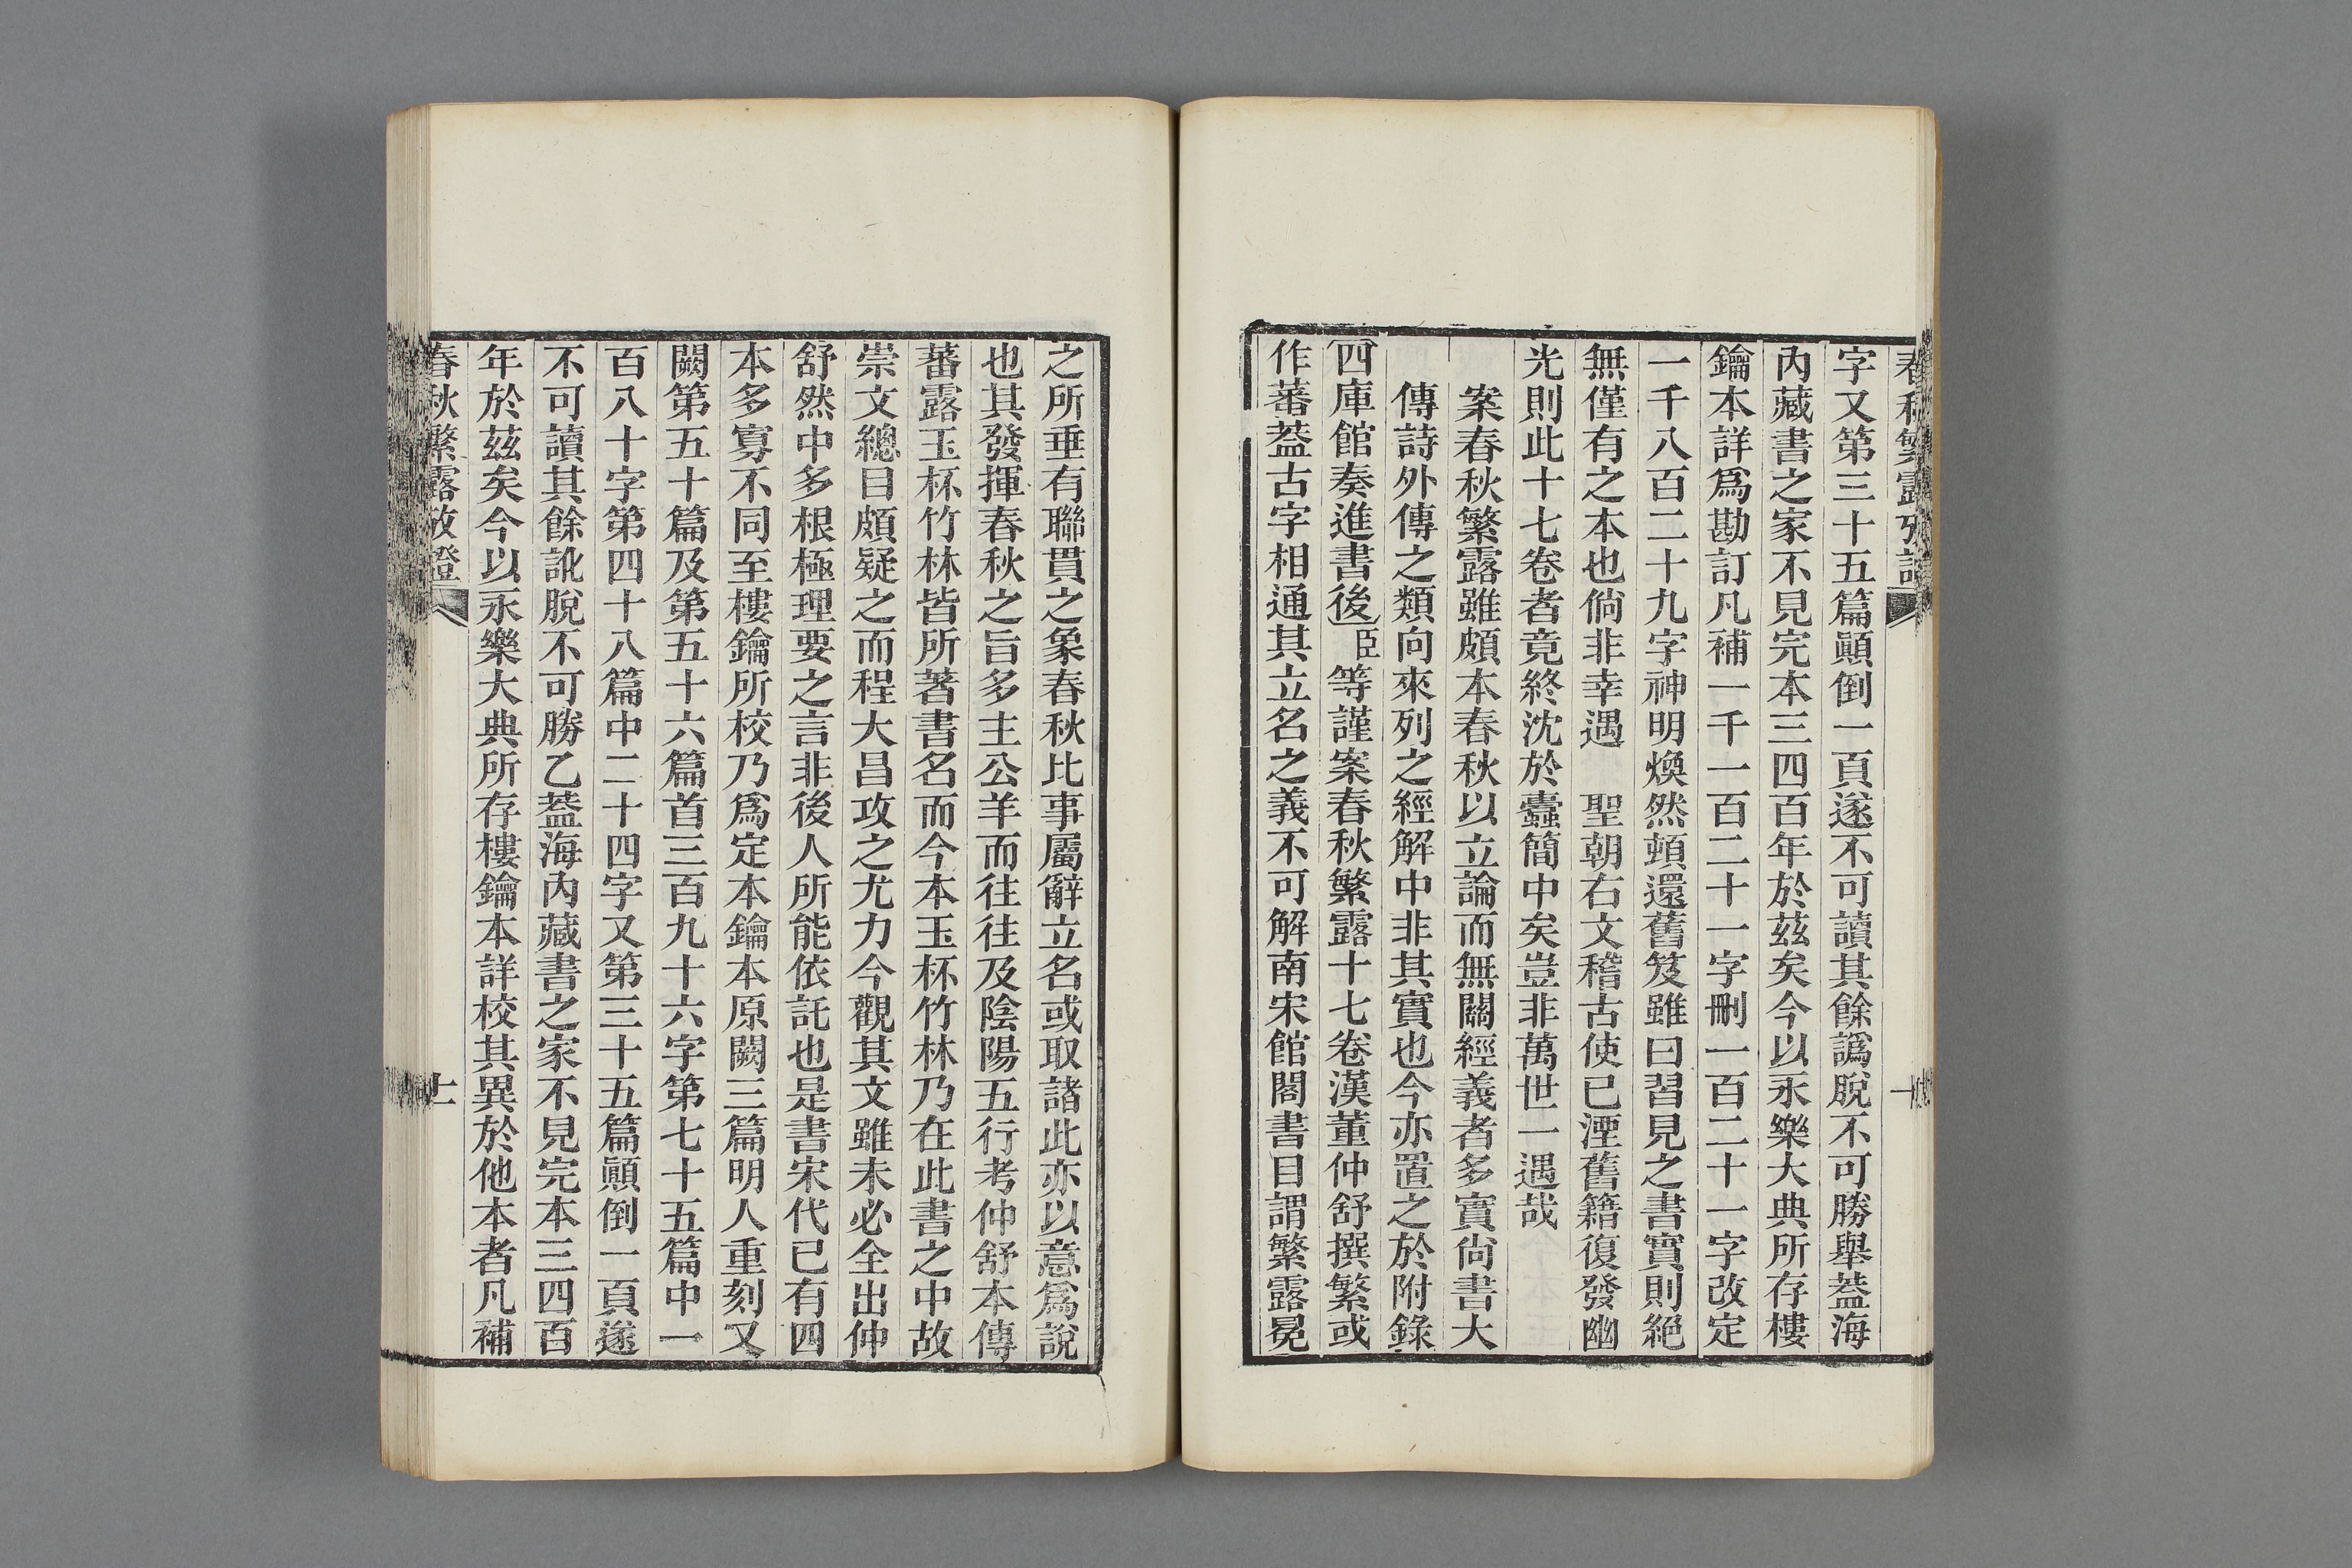 春秋繁露攷證
字又第三十五篇顚倒一頁遂不可讀其餘譌脫不可勝舉蓋海
內藏書之家不見完本三四百年於茲矣今以永樂大典所存樓
鑰本詳爲勘訂凡補一千一百二十一字刪一百二十一字改定
一千八百二十九字神明煥然頓還舊笈雖曰習見之書實則絕
無僅有之本也倘非幸遇　聖朝右文稽古使已湮舊籍復發幽
光則此十七卷者竟終沈於蠹簡中矣豈非萬世一遇哉
案春秋繁露雖頗本春秋以立論而無關經義者多實尙書大
傳詩外傳之類向來列之經解中非其實也今亦置之於附錄
四庫館奏進書後臣等謹案春秋繁露十七卷漢董仲舒撰繁或
作蕃葢古字相通其立名之義不可解南宋館閣書目謂繁露冕
之所垂有聯貫之象春秋比事屬辭立名或取諸此亦以意爲說
也其發揮春秋之旨多主公羊而往往及陰陽五行考仲舒本傳
蕃露玉杯竹林皆所著書名而今本玉杯竹林乃在此書之中故
崇文總目頗疑之而程大昌攻之尤力今觀其文雖未必全出仲
舒然中多根極理要之言非後人所能依託也是書宋代已有四
本多寡不同至樓鑰所校乃爲定本鑰本原闕三篇明人重刻又
闕第五十篇及第五十六篇首三百九十六字第七十五篇中一
百八十字第四十八篇中二十四字又第三十五篇顚倒一頁遂
不可讀其餘訛脫不可勝乙葢海內藏書之家不見完本三四百
年於茲矣今以永樂大典所存樓鑰本詳校其異於他本者凡補
春秋繁露攷證　十